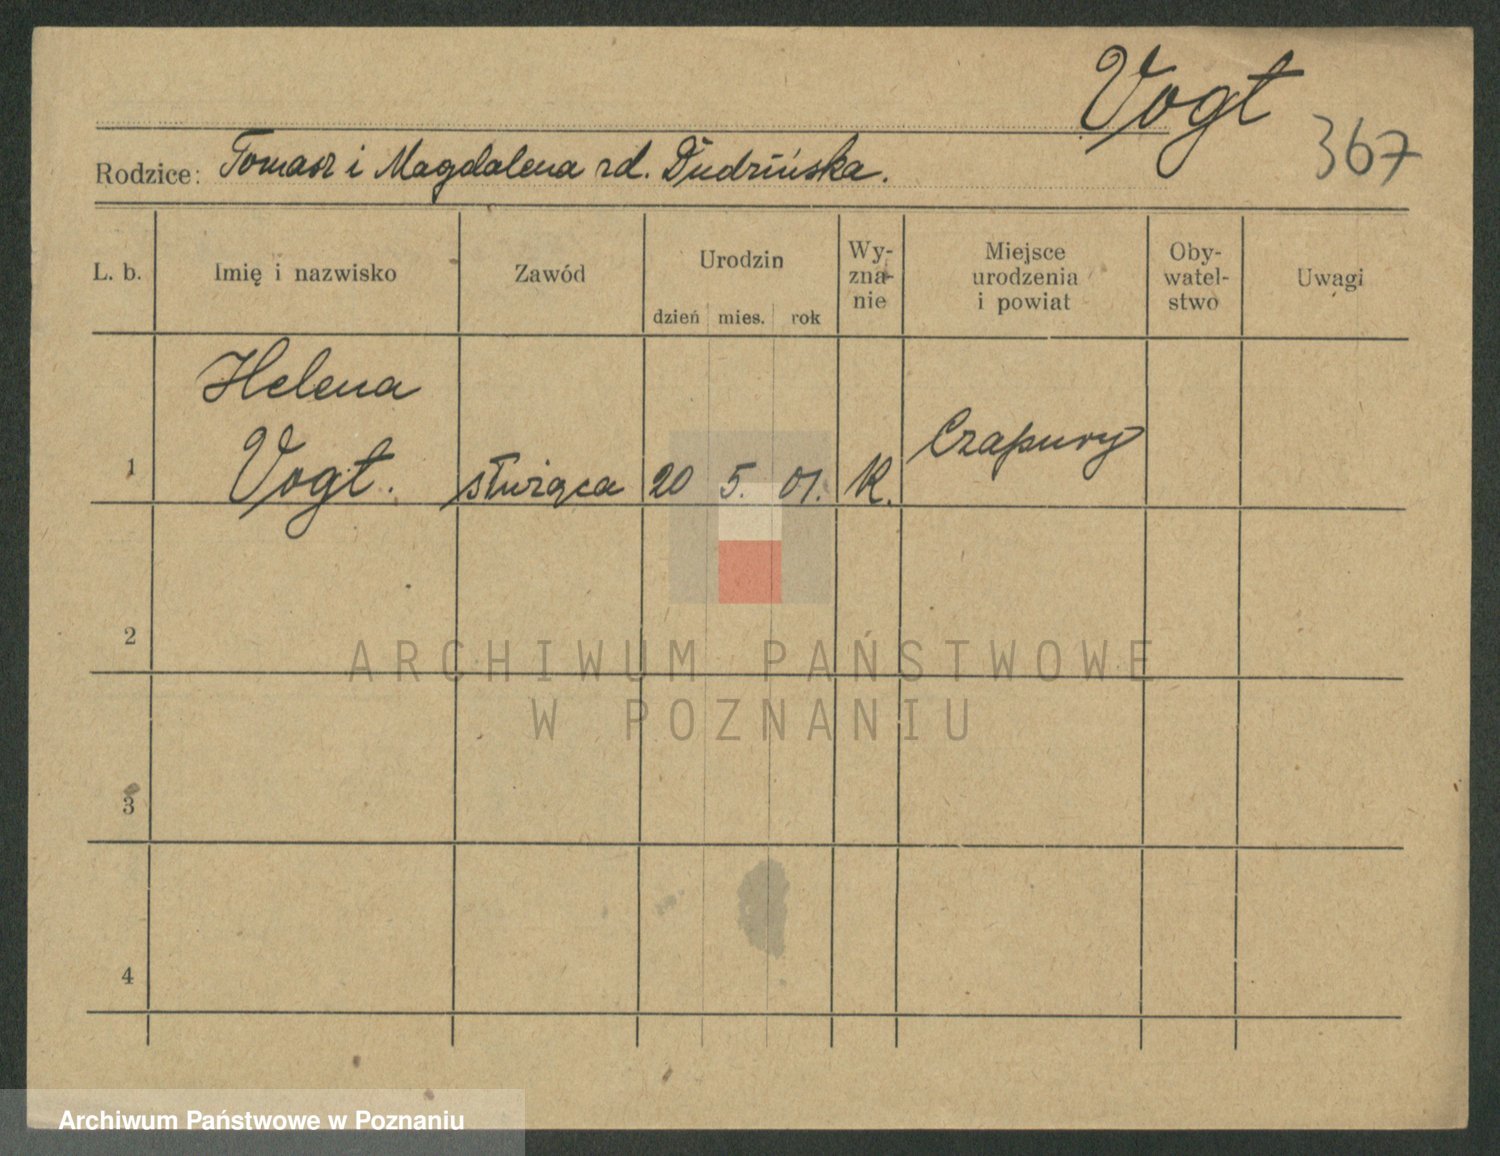 Vogt
367
Rodzice: Tomasz i Magdalena rd. Dudzińska.
L. b. Imię i nazwisko Zawód Urodzin dzień mies. rok Wy-zna-nie Miejsce urodzenia i powiat Oby-watel-stwo Uwagi
Helena
1 Vogt. służąca 20 5. 01. K. Czapury
2
3
4
ARCHIWUM PAŃSTWOWE
W POZNANIU
Archiwum Państwowe w Poznaniu